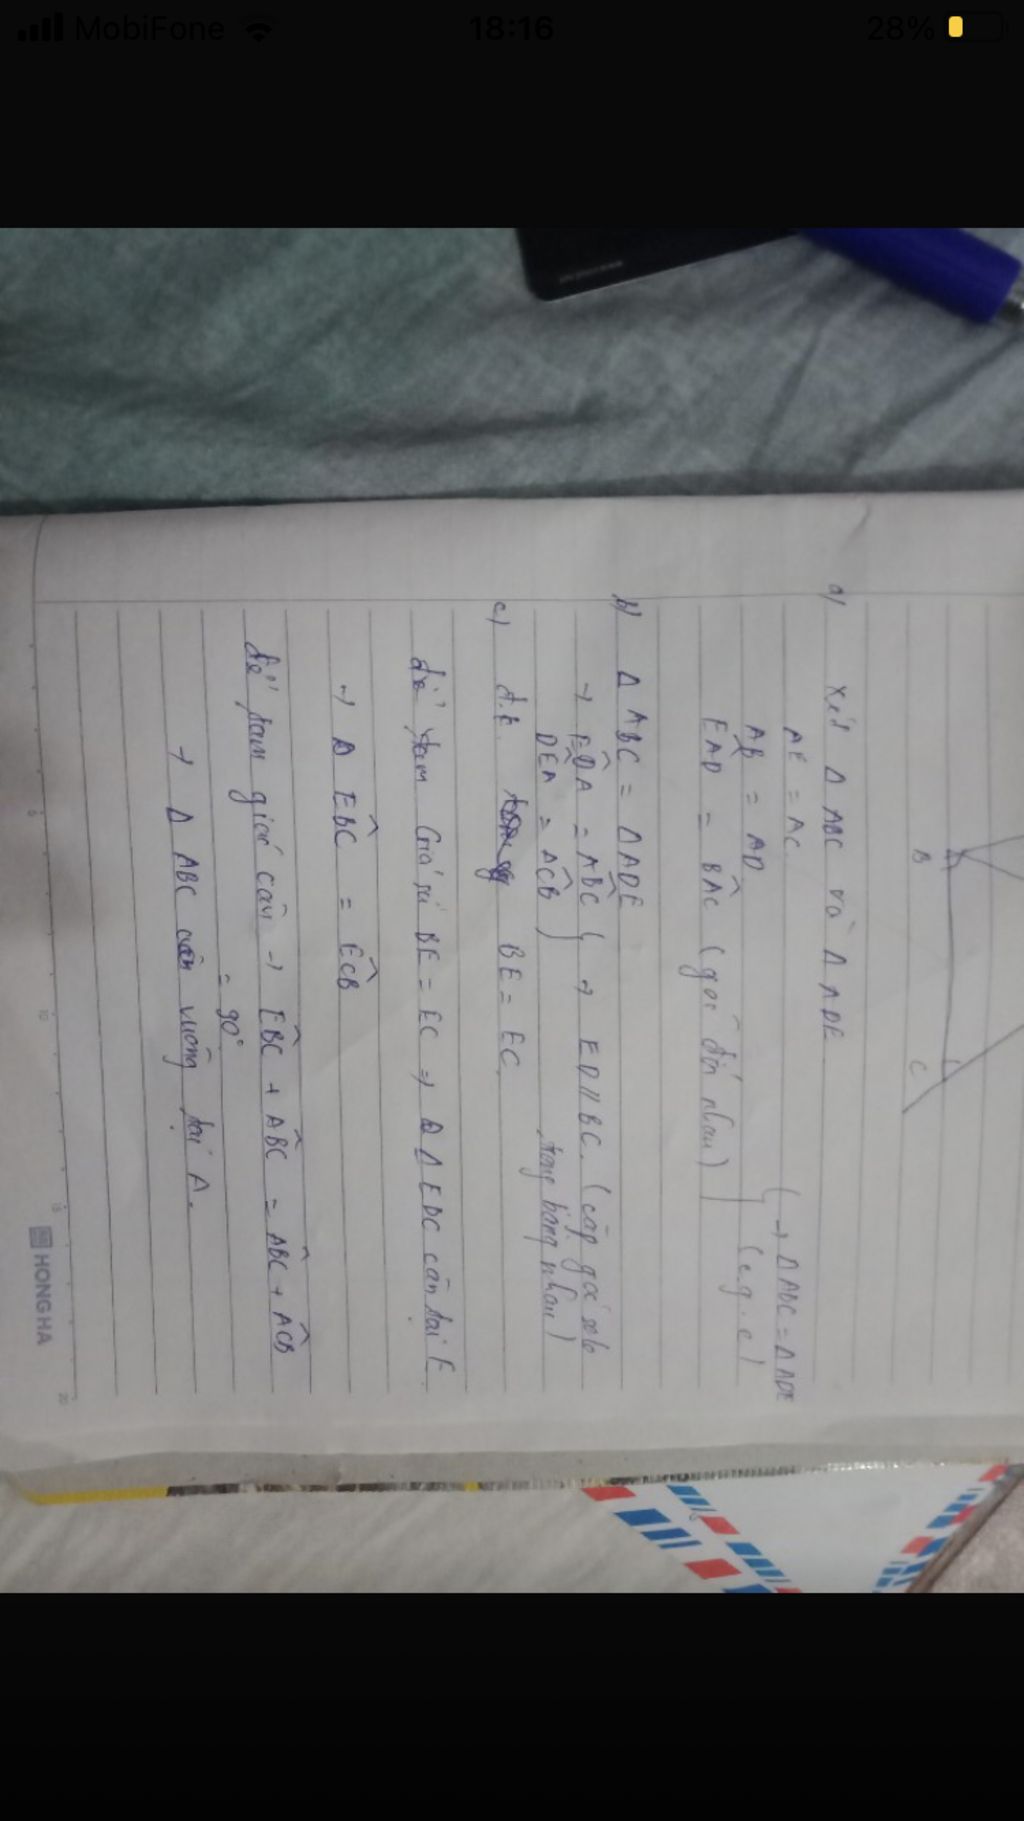 MobiFone 18:16 28%
B C
a) Xét Δ ABC và Δ ADE
AE = AC
AB = AD
EAD = BAC (góc đối nhau)
→ Δ ABC = Δ ADE
(c.g.c)
b) Δ ABC = Δ ADE
→ EDA = ABC
DEA = ACB
→ ED // BC. (cặp góc sole
trong bằng nhau)
c) đk BE = EC
Giả sử BE = EC → Δ EBC cân tại E
→ Δ EBC = ECB
Để tam giác cân → EBC + ABC = ABC + ACB
= 90°
→ Δ ABC vuông tại A.
5 10 15 20
HONGHA